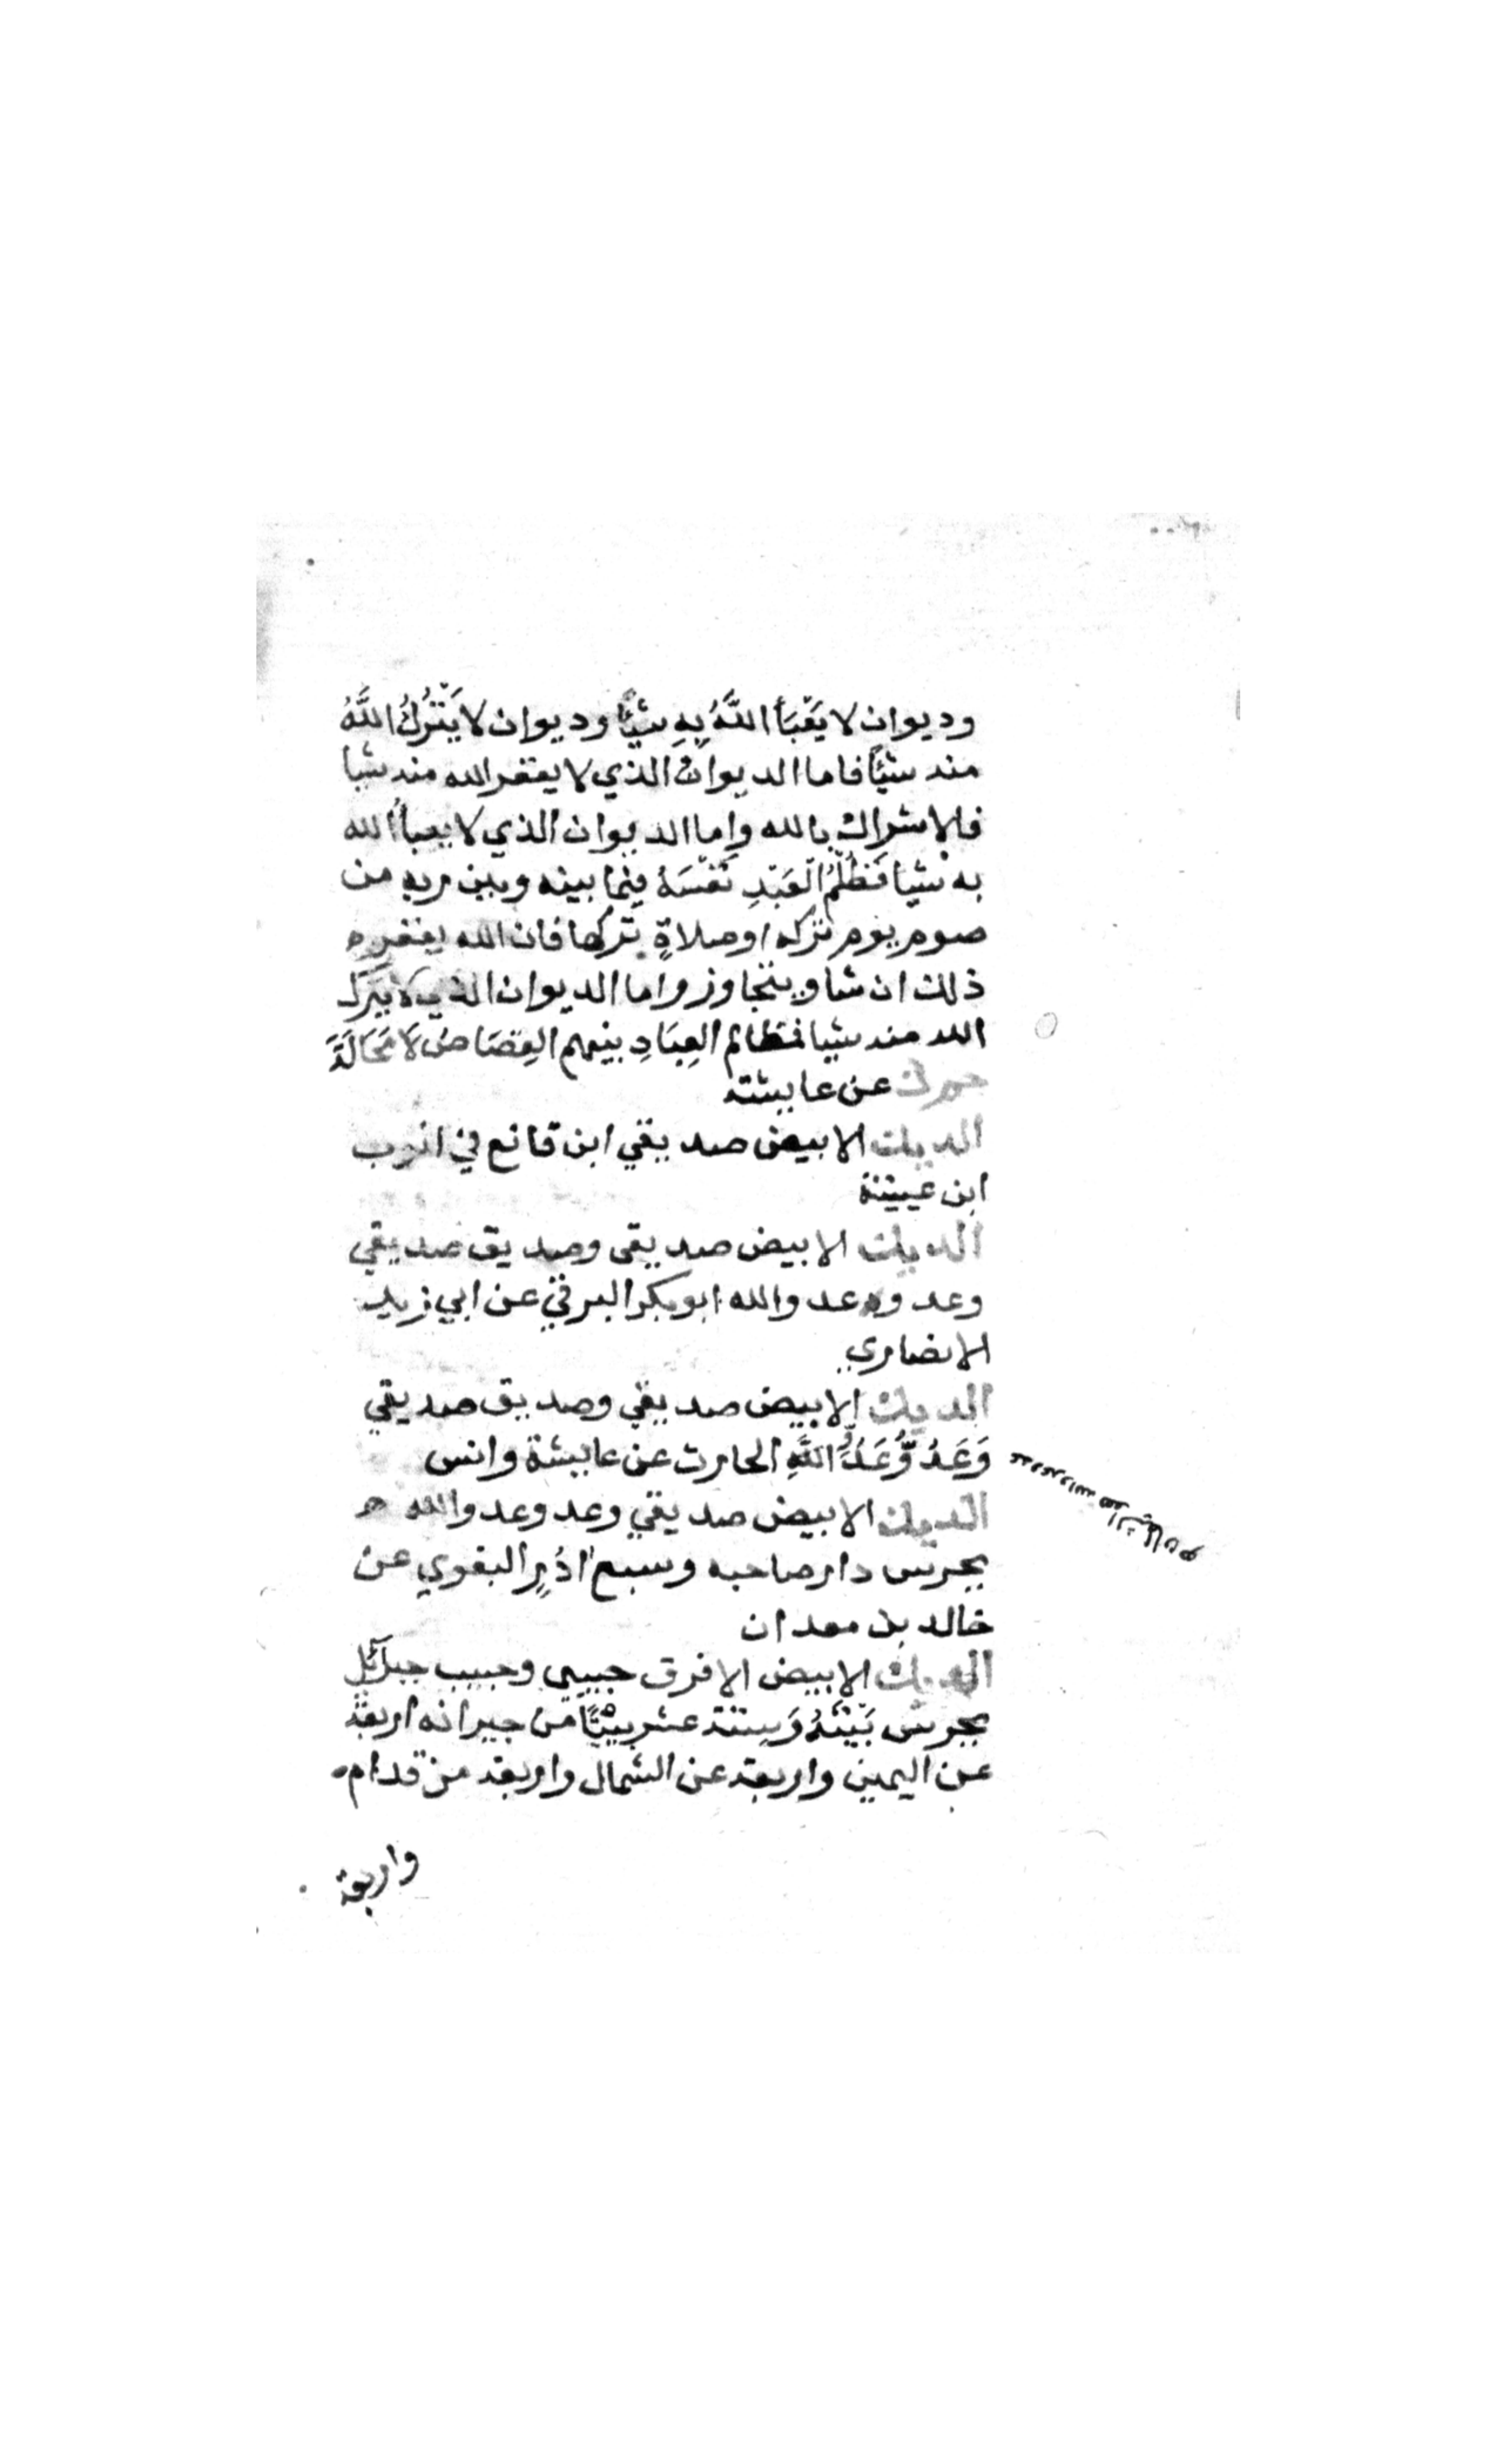 وديوان لا يَعْبَأُ اللَّهُ بِهِ شيئًا وديوان لا يَتْرُكُ اللَّهُ
منه شيئًا فاما الديوان الذي لا يغفر الله منه شيا
فالاشراك بالله واما الديوان الذي لا يعبأ الله
به شيا فَظُلْمُ العَبْدِ نَفْسَهُ فيما بينه وبين ربه من
صوم يوم تركه او صلاةٍ تركها فان الله يغفر
ذلك ان شا ويتجاوز واما الديوان الذي لا يترك
الله منه شيا فمظالم العِبَادِ بينهم القِصَاصُ لَا مَحَالَةَ
حم ك عن عايشة
الديك الابيض صديقي ابن قانع في ايوب
ابن عيينة
الديك الابيض صديقي وصديق صديقي
وعدو عدو الله ابو بكر البرقي عن ابي زيد
الانصاري
الديك الابيض صديقي وصديق صديقي
وَعَدُوُّ عَدُوِّ اللَّهِ الحارث عن عايشة وانس
الديك الابيض صديقي وعدو عدو الله
يحرس دار صاحبه وسبع ادُرٍ البغوي عن
خالد بن معدان
الديك الابيض الافرق حبيبي وحبيب جبرآئل
يحرس بَيْتَهُ وَستة عشر بيتًا من جيرانه اربعة
عن اليمين واربعة عن الشمال واربعة من قدام
واربعة